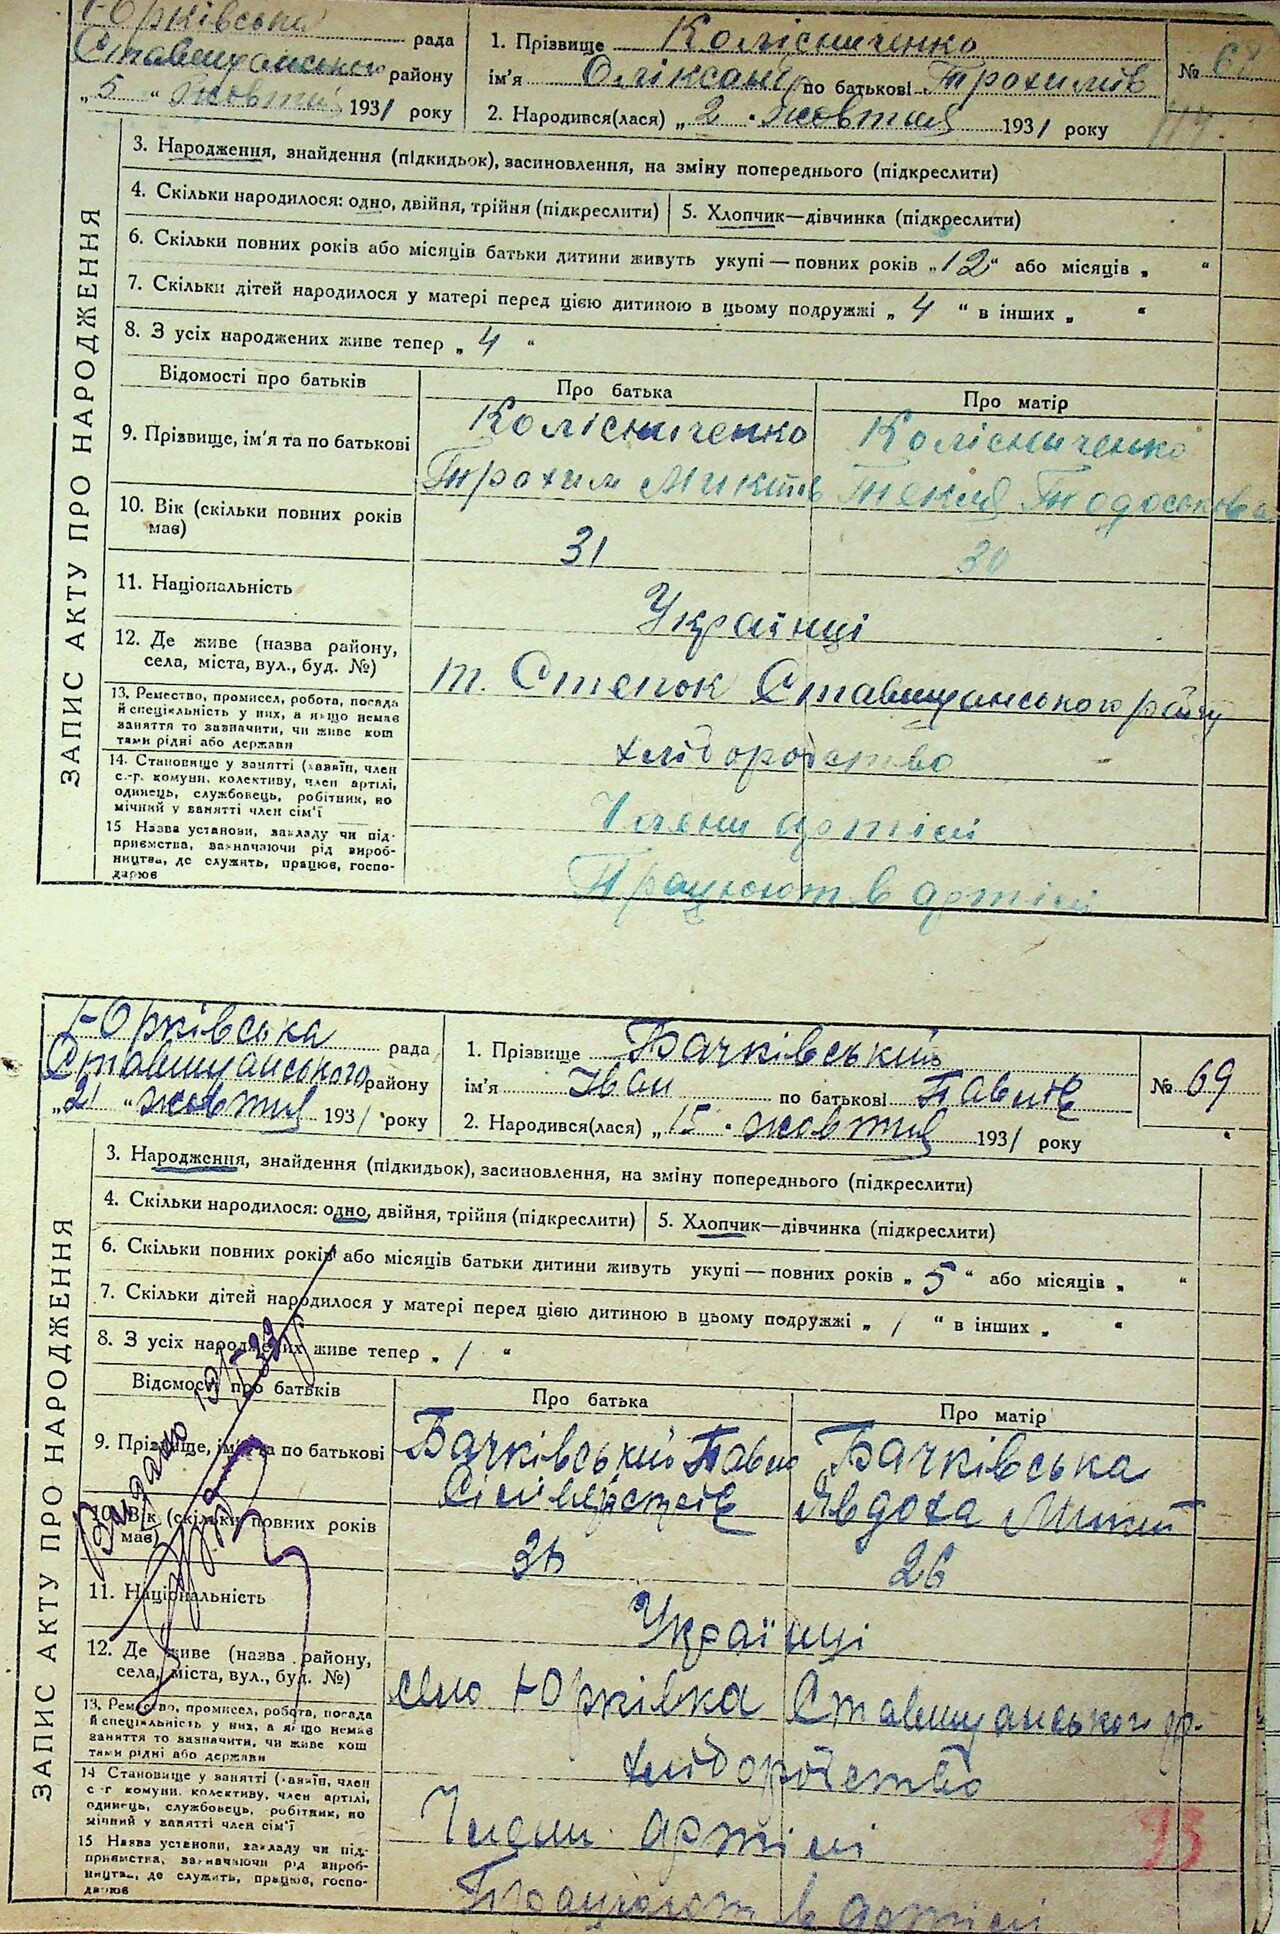 Юрківська рада
Ставищанського району
„5“ Жовтня 1931 року
1. Прізвище Колісниченко
ім'я Оліксанд по батькові Трохимів
2. Народився(лася) „2“ жовтня 1931 року
№ 68
ЗАПИС АКТУ ПРО НАРОДЖЕННЯ
3. Народження, знайдення (підкидьок), засиновлення, на зміну попереднього (підкреслити)
4. Скільки народилося: одно, двійня, трійня (підкреслити)
5. Хлопчик—дівчинка (підкреслити)
6. Скільки повних років або місяців батьки дитини живуть укупі — повних років „12“ або місяців „ “
7. Скільки дітей народилося у матері перед цією дитиною в цьому подружжі „4“ в інших „ “
8. З усіх народжених живе тепер „4“
Відомості про батьків
Про батька
Про матір
9. Прізвище, ім'я та по батькові
Колісниченко
Трохим Микитів
Колісниченко
Текля Тодосьова
10. Вік (скільки повних років має)
31
30
11. Національність
Українці
12. Де живе (назва району,
села, міста, вул., буд. №)
т. Степок Ставищанського рай
13. Ремество, промисел, робота, посада
й спеціяльність у них, а якщо немає
заняття то зазначити, чи живе кош
тами рідні або держави
хліборобство
14. Становище у занятті (хазяїн, член
с.-г. комуни, колективу, член артілі,
одинець, службовець, робітник, по
мічний у занятті член сім'ї
Члени артілі
15 Назва установи, закладу чи під-
приємства, зазначаючи рід вироб-
ництва, де служить, працює, госпо-
дарює
Працюют в артілі
Юрківська рада
Ставищанського району
„21“ жовтня 1931 року
1. Прізвище Бачківський
ім'я Іван по батькові Павлів
2. Народився(лася) „15“ жовтня 1931 року
№ 69
ЗАПИС АКТУ ПРО НАРОДЖЕННЯ
3. Народження, знайдення (підкидьок), засиновлення, на зміну попереднього (підкреслити)
4. Скільки народилося: одно, двійня, трійня (підкреслити)
5. Хлопчик—дівчинка (підкреслити)
6. Скільки повних років або місяців батьки дитини живуть укупі — повних років „5“ або місяців „ “
7. Скільки дітей народилося у матері перед цією дитиною в цьому подружжі „1“ в інших „ “
8. З усіх народжених живе тепер „1“
Відомості про батьків
Про батька
Про матір
9. Прізвище, ім'я та по батькові
Бачківський Павло
Сілівéрстів
Бачківська
Явдоха Микит
10. Вік (скільки повних років
має)
26
11. Національність
Українці
12. Де живе (назва району,
села, міста, вул., буд. №)
село Юрківка Ставищанського р.
13. Ремество, промисел, робота, посада
й спеціяльність у них, а якщо немає
заняття то зазначити, чи живе кош
тами рідні або держави
хліборобство
14 Становище у занятті (хазяїн, член
с.-г. комуни, колективу, член артілі,
одинець, службовець, робітник, по
мічний у занятті член сім'ї
Члени артілі
15 Назва установи, закладу чи під-
приємства, зазначаючи рід вироб-
ництва, де служить, працює, госпо-
дарює
Працюют в артілі
Видано
93